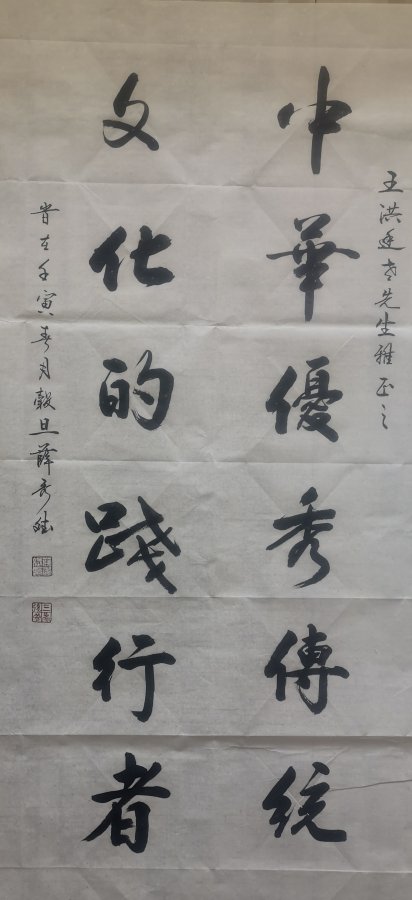 王洪廷老先生雅正之
中華優秀傳統
文化的踐行者
岁在壬寅春月穀旦薛秀